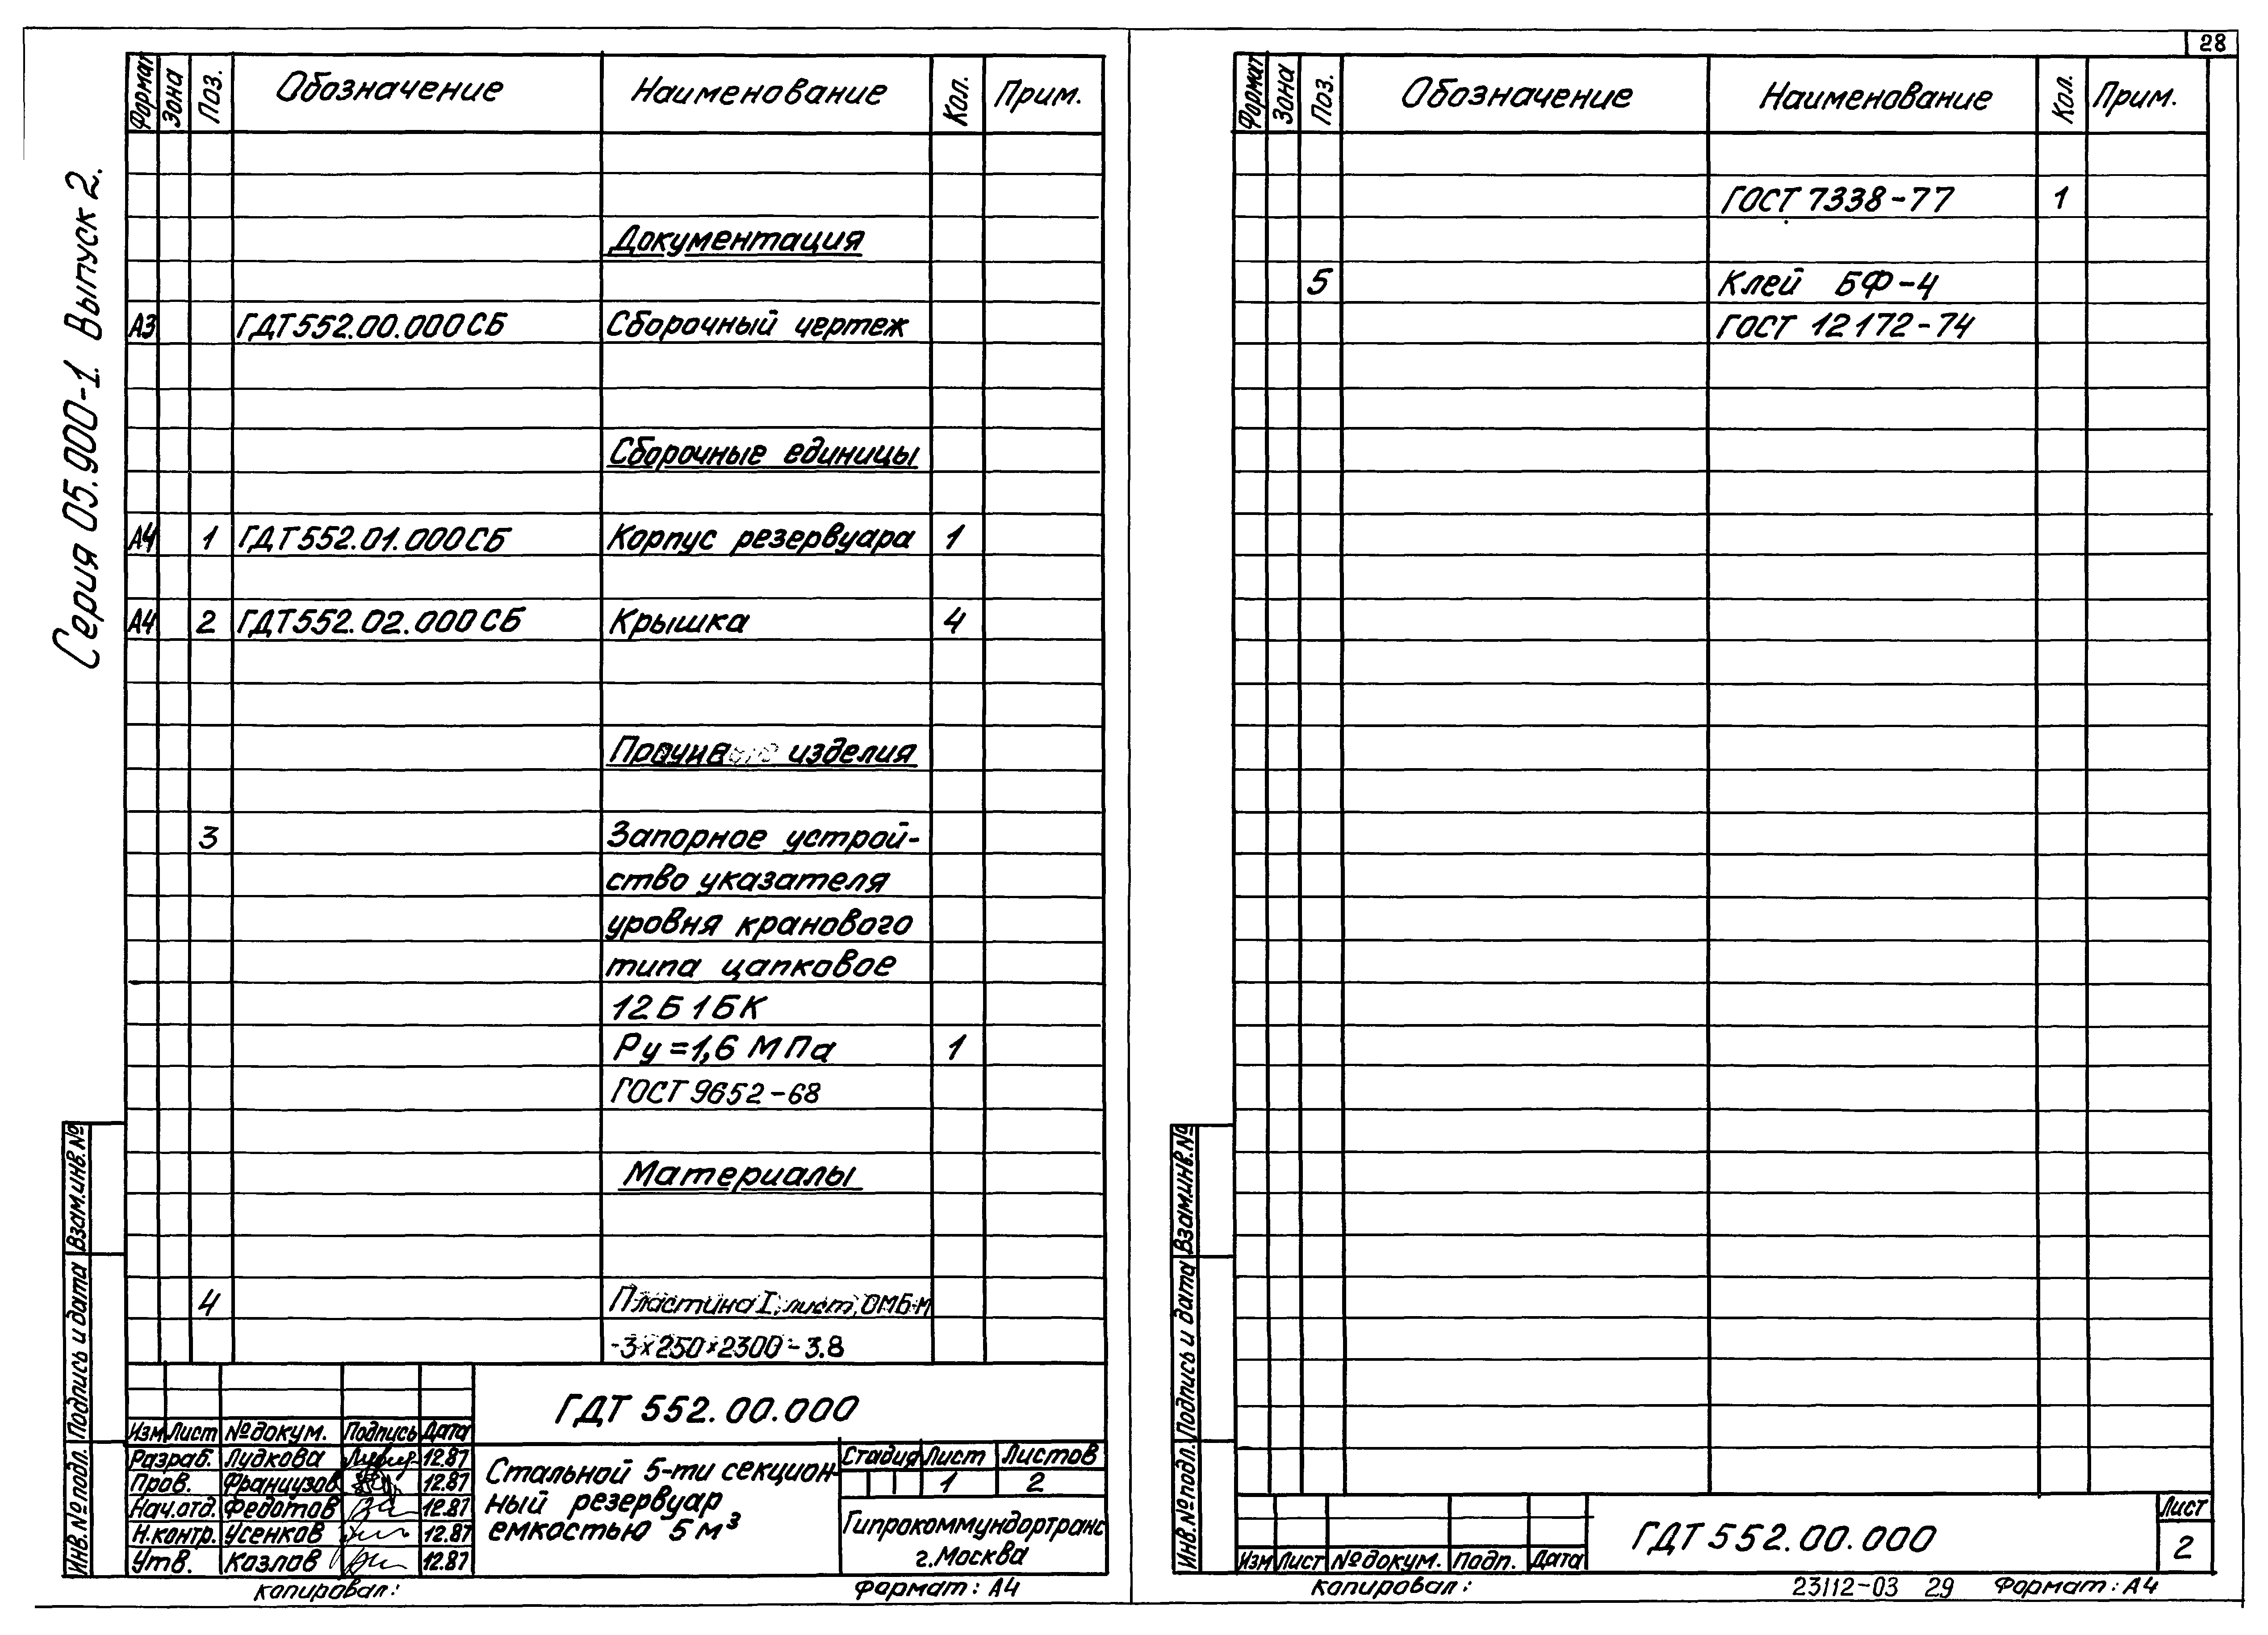 28
Серия 05.900-1. Выпуск 2.
Формат Зона Поз. Обозначение Наименование Кол. Прим.
Документация
А3 ГДТ552.00.000СБ Сборочный чертеж
Сборочные единицы
А4 1 ГДТ552.01.000СБ Корпус резервуара 1
А4 2 ГДТ552.02.000СБ Крышка 4
изделия
3 Запорное устрой-
ство указателя
уровня кранового
типа цапковое
12Б1БК
Ру=1,6 МПа 1
ГОСТ 9652-68
Материалы
4 Пластина I, лист, ОМБ-М
-3×250×2300-3.8
ГДТ 552.00.000
Изм Лист № докум. Подпись Дата
Разраб. Лудкова 12.87
Пров. Французов 12.87
Нач.отд. Федотов 12.87
Н.контр. Усенков 12.87
Утв. Козлов 12.87
Стальной 5-ти секцион-
ный резервуар
емкостью 5м³
Стадия Лист Листов
1 2
Гипрокоммундортранс
г.Москва
Инв.№ подл. Подпись и дата Взам.инв.№
копировал: Формат: А4
Формат Зона Поз. Обозначение Наименование Кол. Прим.
ГОСТ 7338-77 1
5 Клей БФ-4
ГОСТ 12172-74
Инв.№ подл. Подпись и дата Взам.инв.№
Изм Лист № докум. Подп. Дата
ГДТ 552.00.000
Лист
2
копировал: 23112-03 29 Формат: А4